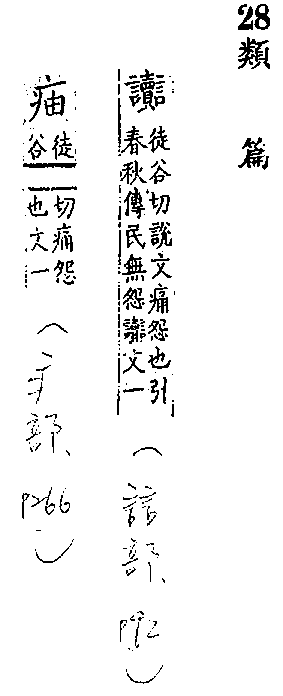 28類篇
讟徒谷切說文痛怨也引
春秋傳民無怨讟文一
(誩部 P92)
㾄徒
谷
切痛怨
也文一
(疒部 P266)